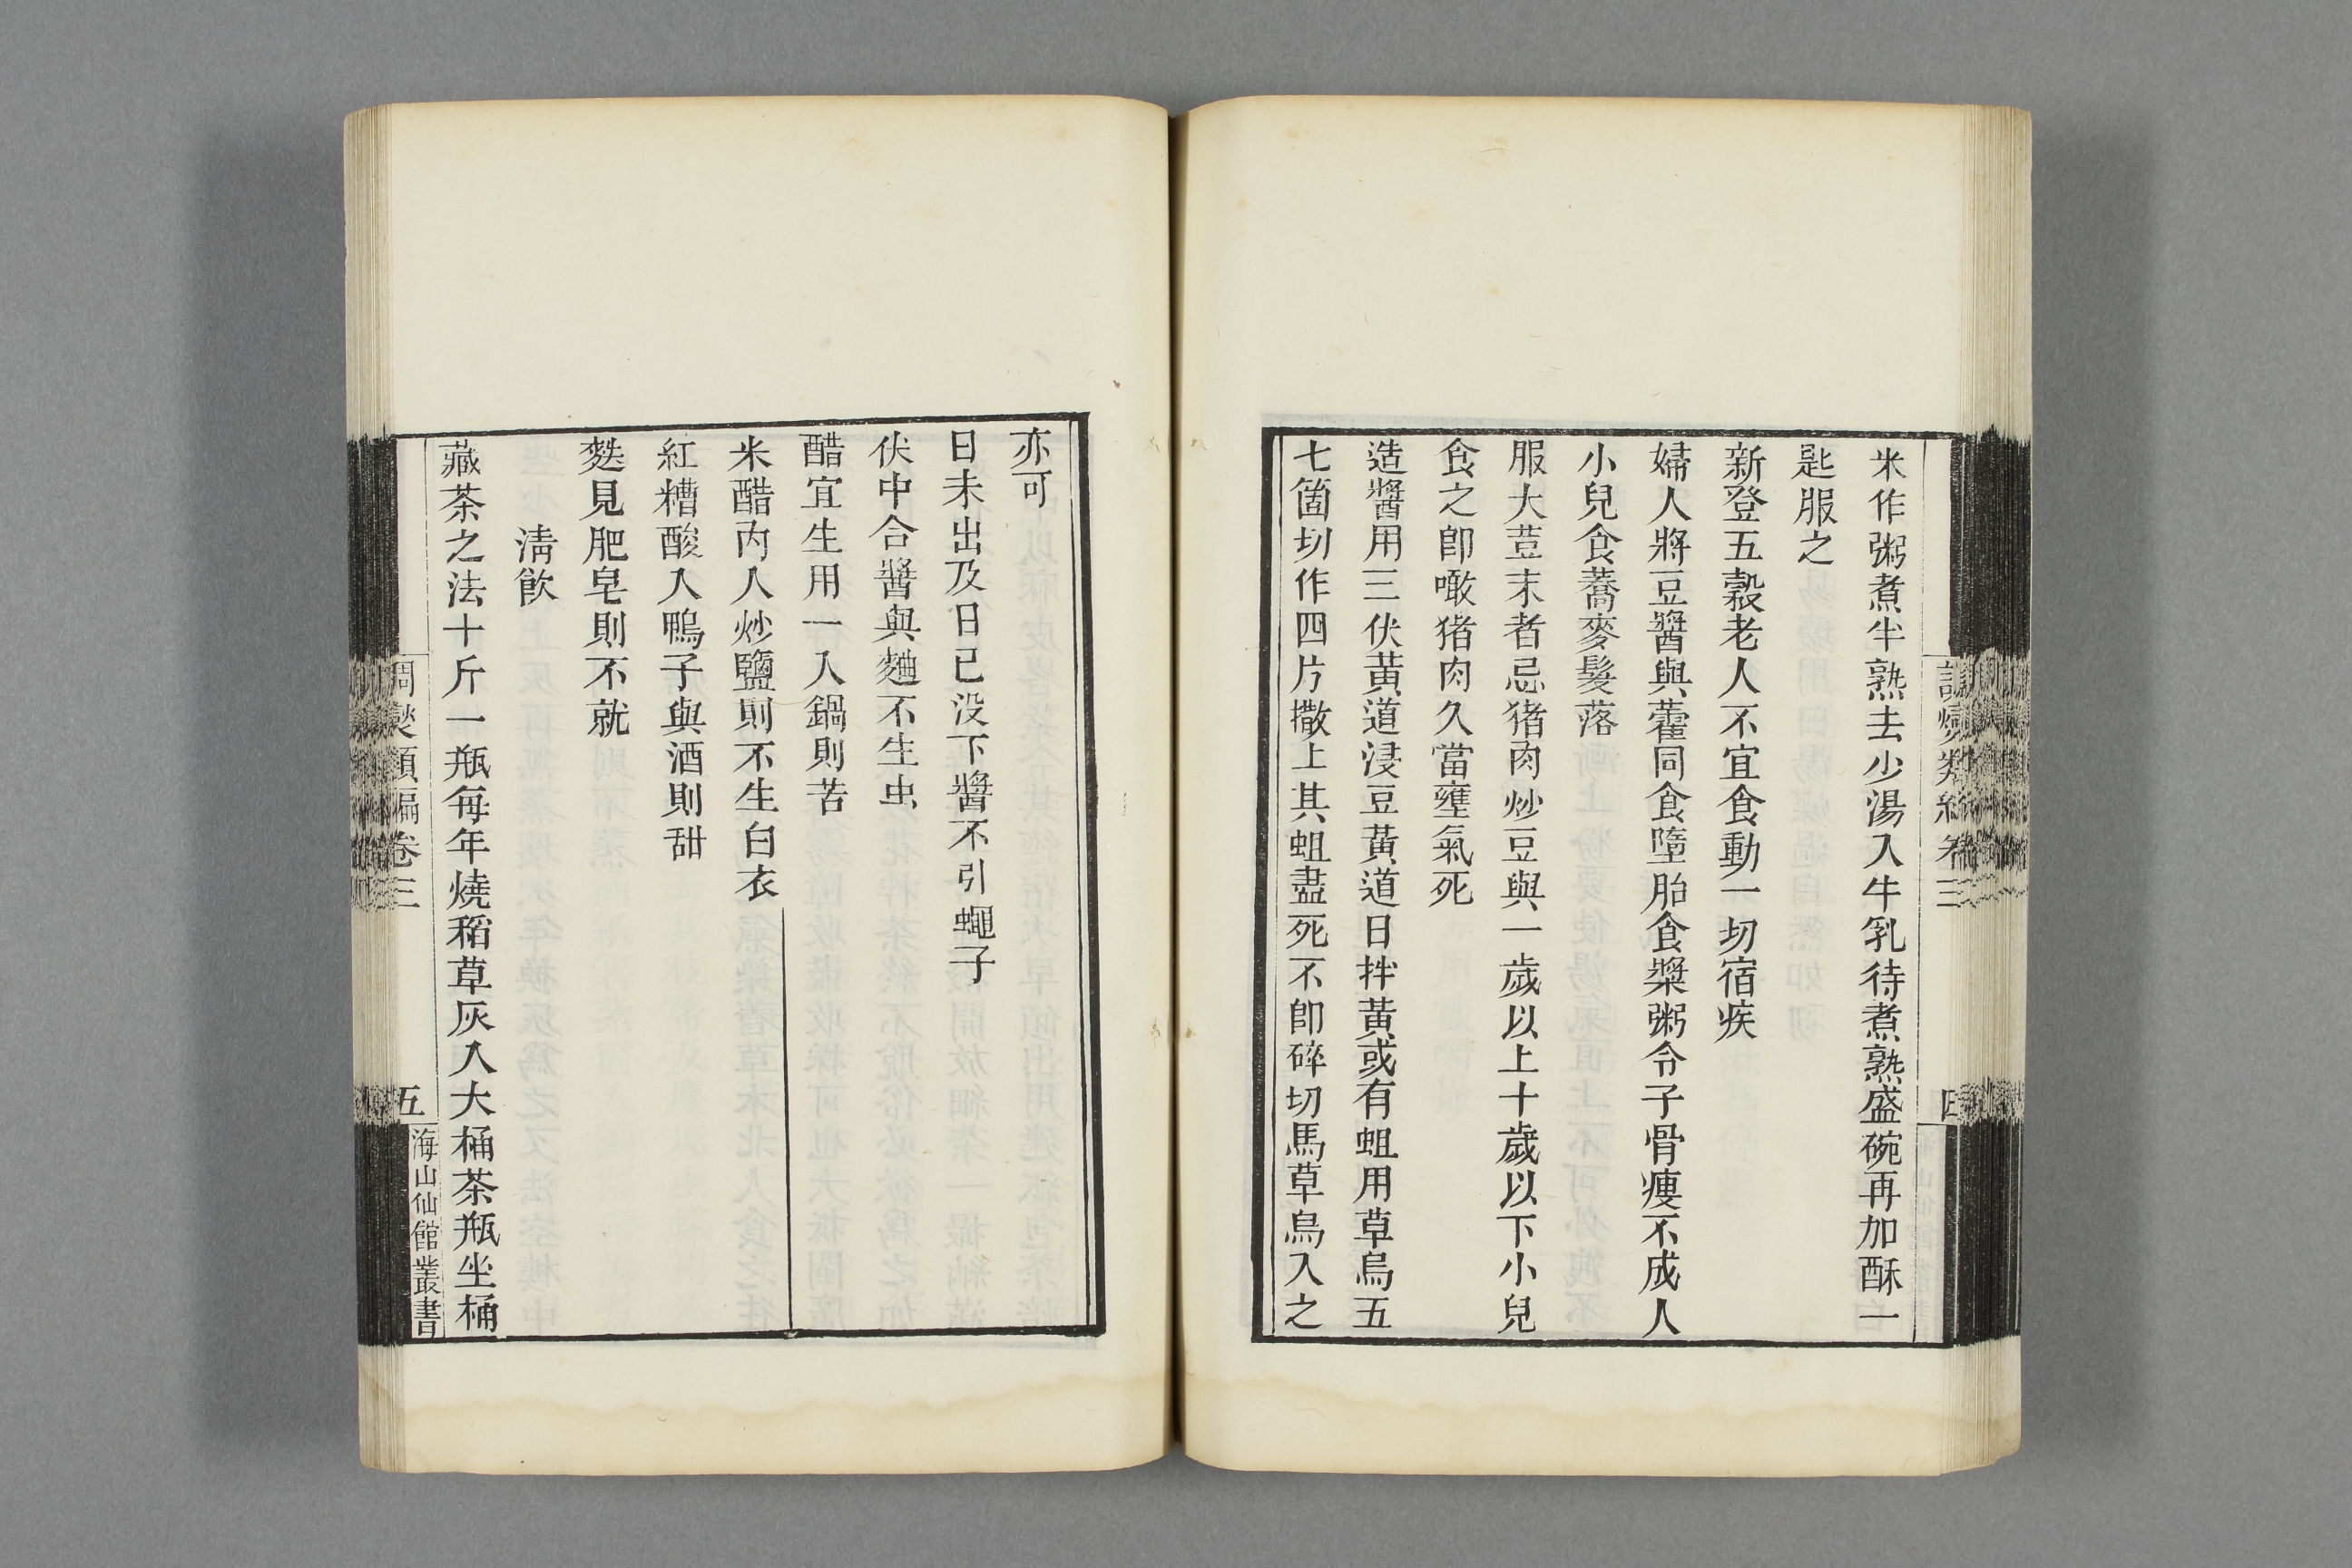 米作粥煮半熟去少湯入牛乳待煮熟盛碗再加酥一
匙服之
新登五穀老人不宜食動一切宿疾
婦人將豆醬與藿同食墮胎食漿粥令子骨瘦不成人
小兒食蕎麥髮落
服大荳末者忌猪肉炒豆與一歲以上十歲以下小兒
食之卽噉猪肉久當壅氣死
造醬用三伏黃道浸豆黃道日拌黃或有蛆用草烏五
七箇切作四片撒上其蛆盡死不卽碎切馬草烏入之
亦可
日未出及日已没下醬不引蠅子
伏中合醬與麵不生虫
醋宜生用一入鍋則苦
米醋內入炒鹽則不生白衣
紅糟酸入鴨子與酒則甜
麩見肥皂則不就
清飲
藏茶之法十斤一瓶每年燒稻草灰入大桶茶瓶坐桶
調燮類編卷三
五
海山仙館叢書